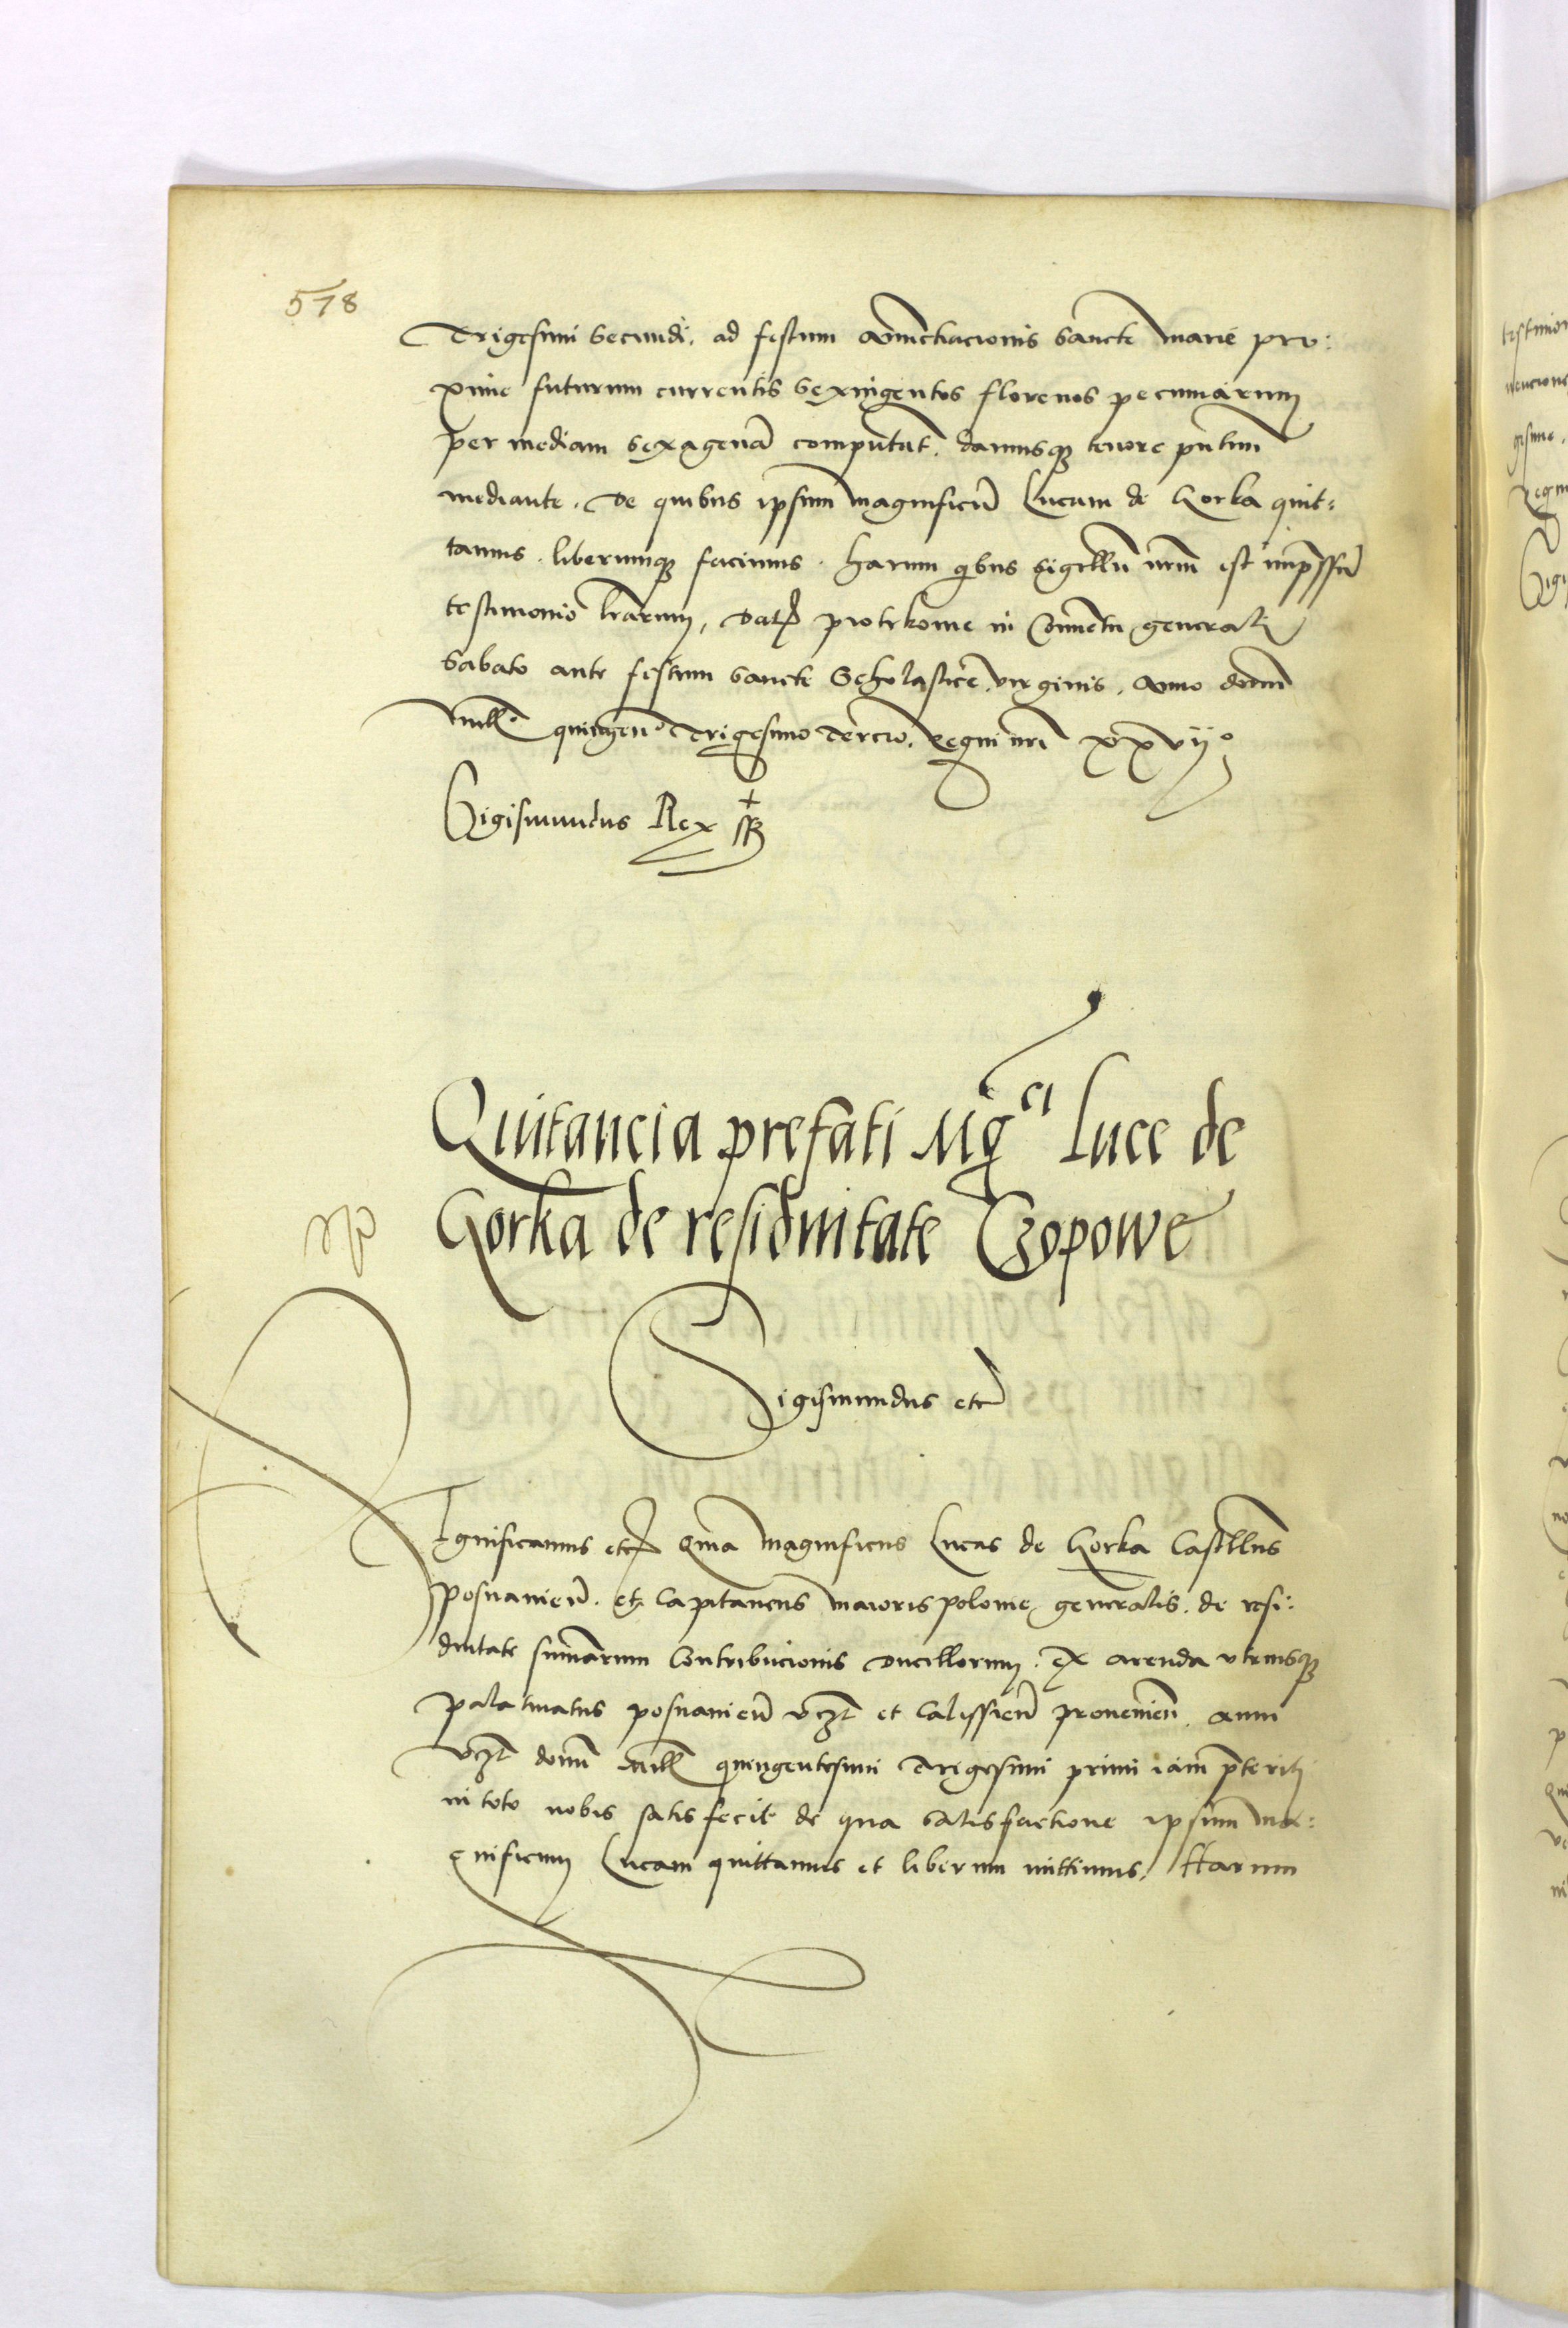 578
Trigesimi secundi. ad festum Annunctiacionis sancte Marie pro:
xime futurum currentis sexingentos florenos pecuniarum
per mediam sexagenã computat̃. damusq3 tenore pñtium
mediante. De quibus ipsum magnificũ Lucam de Gorka quit:
tamus. liberumq3 facimus. Harum qibus sigillũ nr̃m est imp̃ssũ
testimonio lr̃arum, Dat̃ Piotrkowie in Conuentu generali
Sabato ante festum sancte Scholastice virginis. Anno domĩ
Mill̃o quingen̊ Trigesimo Tercio. Regni nr̃i xxvijo
Sigismundus Rex sst
Quitancia prefati Mgci Luce de
Gorka de residuitate Czopowe
Sigismundus etc̃
Significamus etc̃ Quia magnificus Lucas de Gorka Castell̃us
Posnanien̄. et Capitaneus Maioris Polonie generalis. de resi:
duitate summarum Contribucionis Ducillorum. ex arenda vtriusq3
palatinatus posnanien̄ vcz̃t et Calissien̄ prouenien̄. anni
vcz̃t domĩ mill̃ quingentesimi Trigesimi primi iam p̃teriti
in toto nobis satisfecit de qua satisfactione ipsum Ma:
gnificum Lucam quittamus et liberum mittimus. Harum